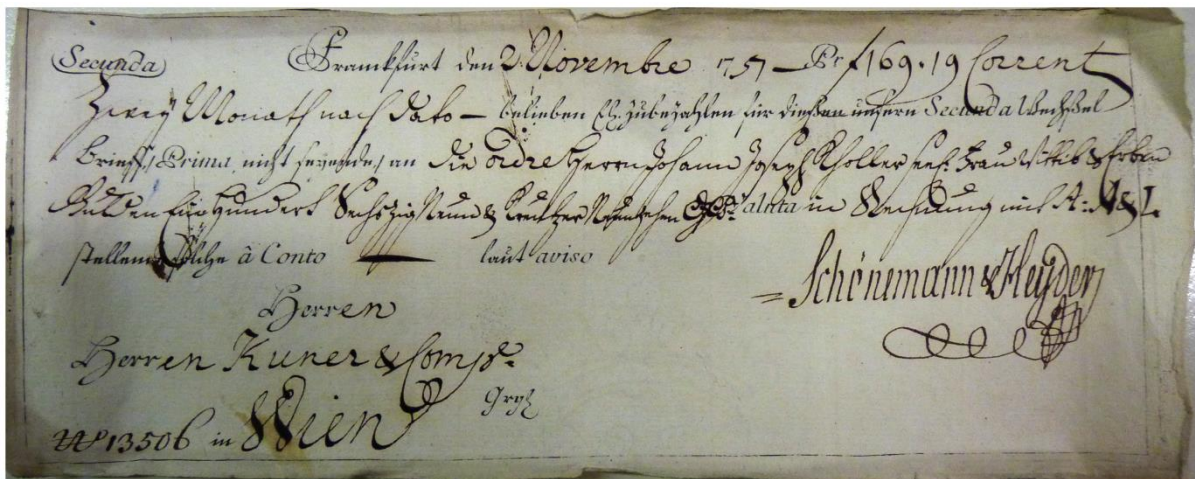 Secunda Franckfurt den 2. Novembre 1751 — Pr f 169.19 Corrent
Zwey Monath nach dato — belieben zubezahlen für dießen unsern Secunda Wechßel
Brieff, Prima nicht seyende, an die ordre Herrn Johann Joseph Kholler seel. Frau Wittib & Erben
Gulden Ein Hundert Sechszig Neun & Kreutzer Neunzehen Valuta in Rechnung mit
stellen solche à Conto — laut aviso
Schönemann & Heyder
Herren
Herren Kuner & Comp.
in Wien
13506